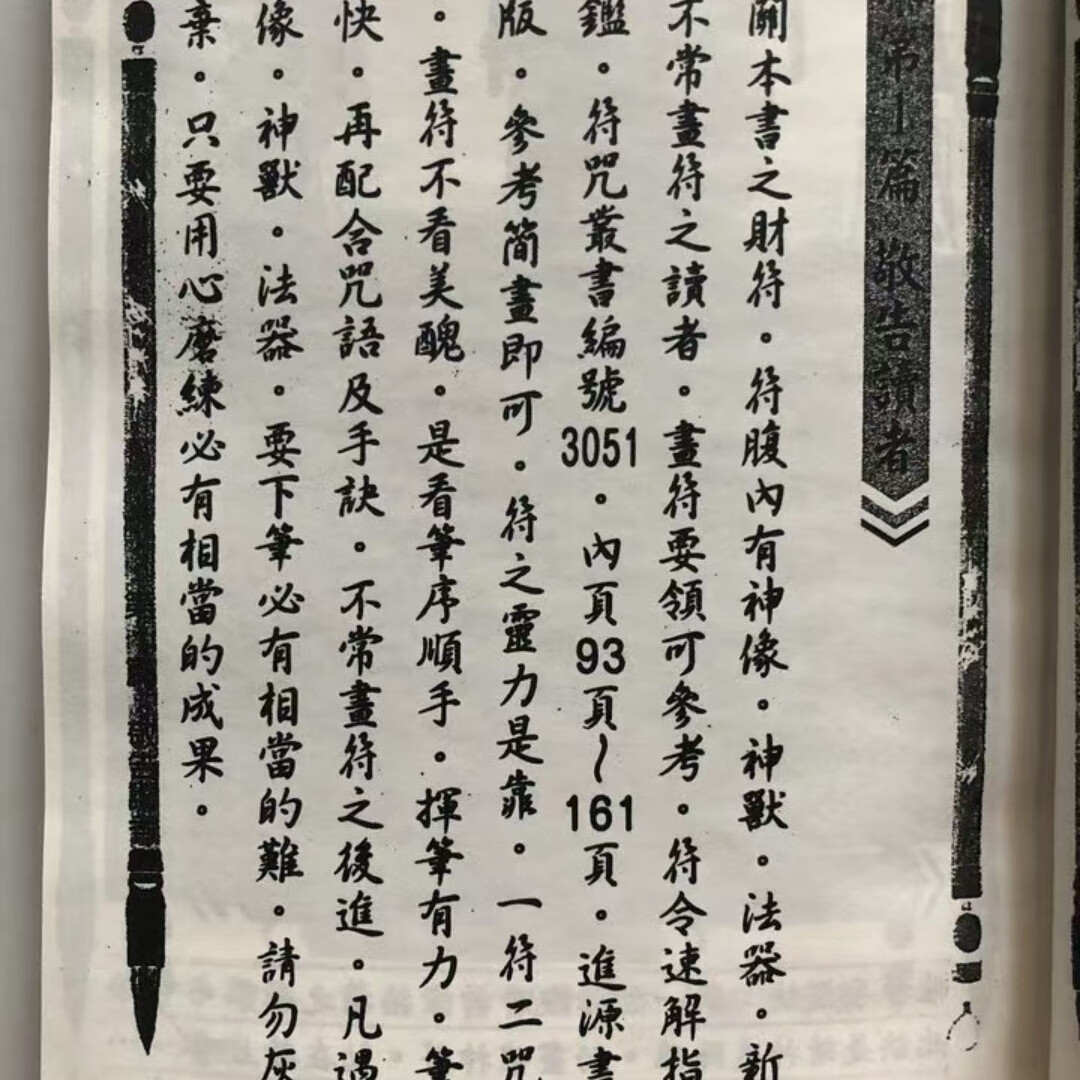 第一篇 敬告讀者
關本書之財符。符腹內有神像。神獸。法器。新
不常畫符之讀者。畫符要領可參考。符令速解指
鑑。符咒叢書編號3051。內頁93頁~161頁。進源書
版。參考簡畫即可。符之靈力是靠。一符二咒
。畫符不看美醜。是看筆序順手。揮筆有力。筆
快。再配合咒語及手訣。不常畫符之後進。凡遇
像。神獸。法器。要下筆必有相當的難。請勿灰
棄。只要用心磨練必有相當的成果。